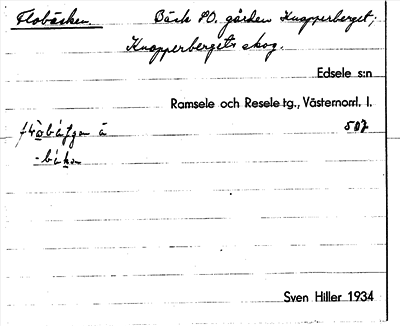 Flobäcken. Bäck SO. gården Knapperberget;
Knapperbergets skog.
Edsele s:n
Ramsele och Resele tg., Västernorrl. l.
507
Sven Hiller 1934